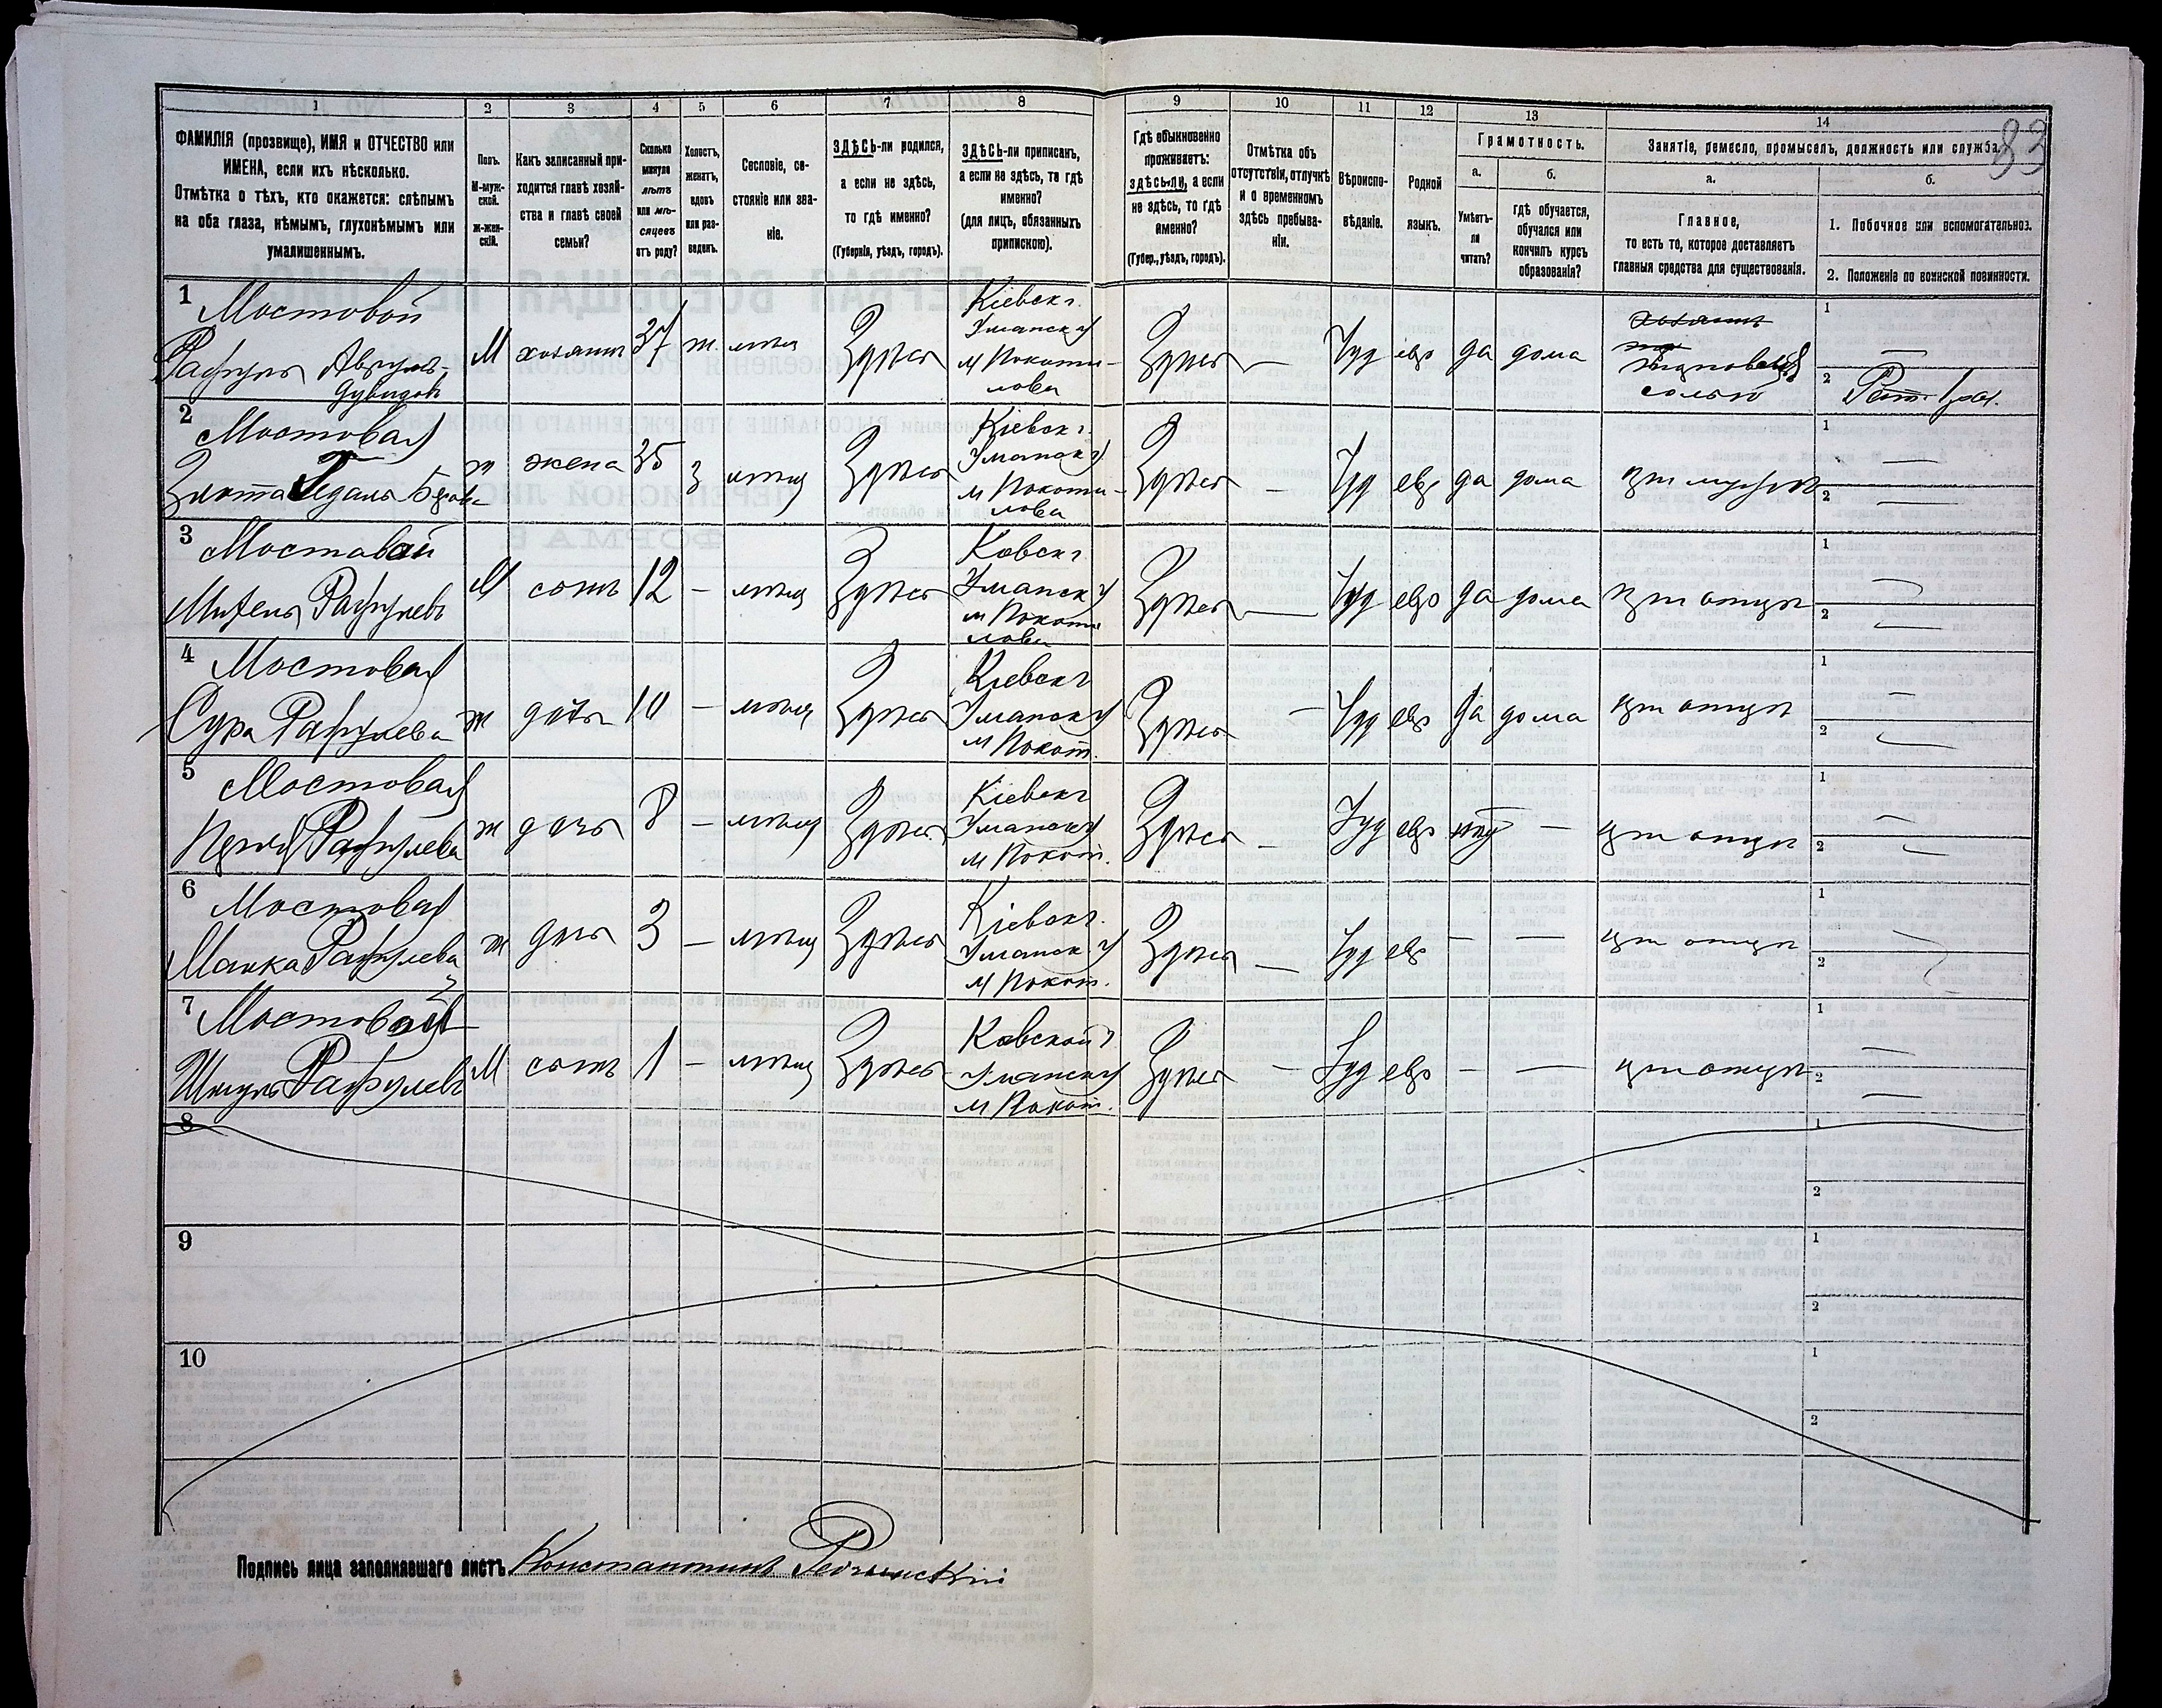 1
2
3
4
5
6
7
8
9
10
11
12
13
14
83
ФАМИЛІЯ (прозвище), ИМЯ и ОТЧЕСТВО или
ИМЕНА, если ихъ нѣсколько.
Отмѣтка о тѣхъ, кто окажется: слѣпымъ
на оба глаза, нѣмымъ, глухонѣмымъ или
умалишеннымъ.
Полъ.
М-муж-
ской.
ж-жен-
скій.
Какъ записанный при-
ходится главѣ хозяй-
ства и главѣ своей
семьи?
Сколько
минуло
лѣтъ
или мѣ-
сяцевъ
отъ роду?
Холостъ,
женатъ,
вдовъ
или раз-
веденъ.
Сословіе, со-
стояніе или зва-
ніе.
ЗДѢСЬ-ли родился,
а если не здѣсь,
то гдѣ именно?
(Губернія, уѣздъ, городъ).
ЗДѢСЬ-ли приписанъ,
а если не здѣсь, то гдѣ
именно?
(для лицъ, обязанныхъ
припискою).
Гдѣ обыкновенно
проживаетъ:
здѣсь-ли, а если
не здѣсь, то гдѣ
именно?
(Губер., уѣздъ, городъ).
Отмѣтка объ
отсутствіи, отлучкѣ
и о временномъ
здѣсь пребыва-
ніи.
Вѣроиспо-
вѣданіе.
Родной
языкъ.
Грамотность.
а.
Умѣетъ-
ли
читать?
б.
гдѣ обучается,
обучался или
кончилъ курсъ
образованія?
Занятіе, ремесло, промыселъ, должность или служба.
а.
Главное,
то есть то, которое доставляетъ
главныя средства для существованія.
б.
1. Побочное или вспомогательное.
2. Положеніе по воинской повинности.
1 Мостовой
М хозяинъ 37 ж. мѣщ Здѣсь
Кіевск г.
Уманск у
м Покоти-
лова
Здѣсь — Іуд евр да дома
солью
1 —
2
2 Мостовая
Злота
ж жена 35 з мѣщ Здѣсь
Кіевск г.
Уманск у
м Покоти-
лова
Здѣсь — Іуд евр да дома при мужѣ
1 —
2 —
3 Мостовой
М сынъ 12 — мѣщ Здѣсь
Кіевск г
Уманск у
м Покоти
лова
Здѣсь — Іуд евр да дома при отцѣ
1 —
2 —
4 Мостовая
Сура Рафулева ж дочь 10 — мѣщ Здѣсь
Кіевск г
Уманск у
м Покот.
Здѣсь — Іуд евр да дома при отцѣ
1 —
2 —
5 Мостовая
Рафулева ж дочь 8 — мѣщ Здѣсь
Кіевск г
Уманск у
м Покот.
Здѣсь — Іуд евр нѣт — при отцѣ
1 —
2 —
6 Мостовая
Манка Рафулева ж дочь 3 — мѣщ Здѣсь
Кіевск г.
Уманск у
м Покот.
Здѣсь — Іуд евр — — при отцѣ
1
2
7 Мостовой
Рафулевъ М сынъ 1 — мѣщ Здѣсь
Кіевской г
Уманск у
м Покот.
Здѣсь — Іуд евр — — при отцѣ
1 —
2 —
8
1
2
9
1
2
10
1
2
Подпись лица заполнявшаго листъ Константинъ